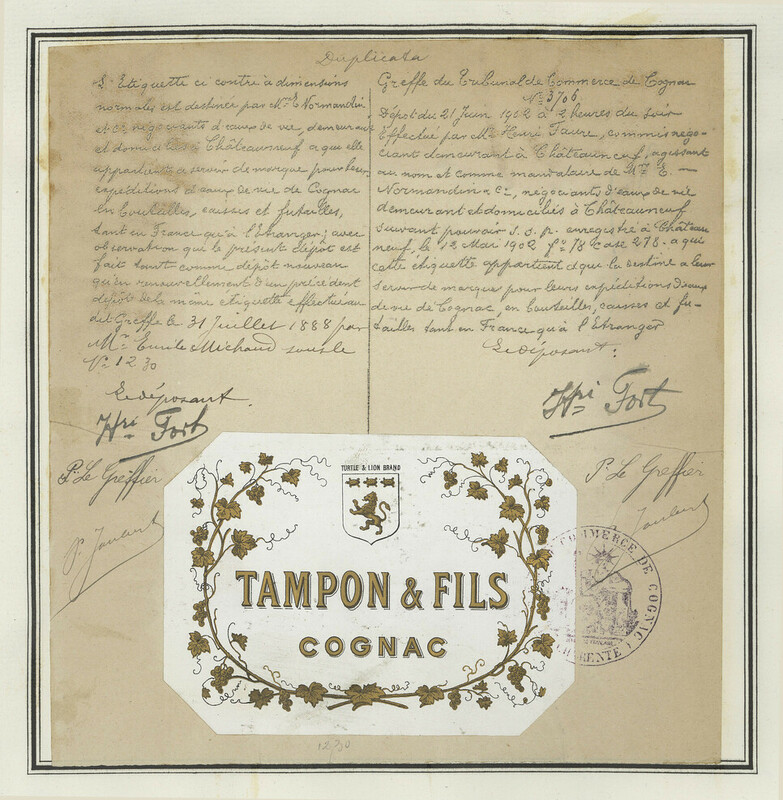 Duplicata
L'Etiquette ci contre à dimensions
normales est destinée par Mrs E. Normandin
et Cie négociants d'eaux de vie, demeurant
et domiciliés à Châteauneuf a que elle
appartient a servir de marque pour leurs
expéditions d'eaux de vie de Cognac
en bouteilles, caisses et futailles,
tant en France qu'à l'Etranger; avec
observation que le présent dépôt est
fait tant comme dépôt nouveau
qu'en renouvellement d'un précédent
dépôt de la même etiquette effectué au
dit Greffe le 31 Juillet 1888 par
Mr Emile Michaud sous le
No 1230
Le déposant.
Hri Fort
Pr Le Greffier
P. Joubert
Greffe du Tribunal de Commerce de Cognac
No 3706
Dépôt du 21 Juin 1902 à 2 heures du soir
Effectué par Mr Henri Faure, commis négo-
ciant demeurant à Châteauneuf, agissant
au nom et comme mandataire de Mrs E.
Normandin & Cie, négociants d'eaux de vie
demeurant et domiciliés à Châteauneuf
suivant pouvoir s.s.p. enregistré à Château
neuf, le 12 Mai 1902 fo 78 case 278 a qui
cette étiquette appartient et qui la destine a leur
servir de marque pour leurs expéditions d'eaux
de vie de Cognac, en bouteilles, caisses et fu-
tailles tant en France qu'à l'Etranger
Le déposant:
Hri Fort
Pr Le Greffier
Joubert
TURTLE & LION BRAND
TAMPON & FILS
COGNAC
COMMERCE DE COGNAC
CHARENTE
1230